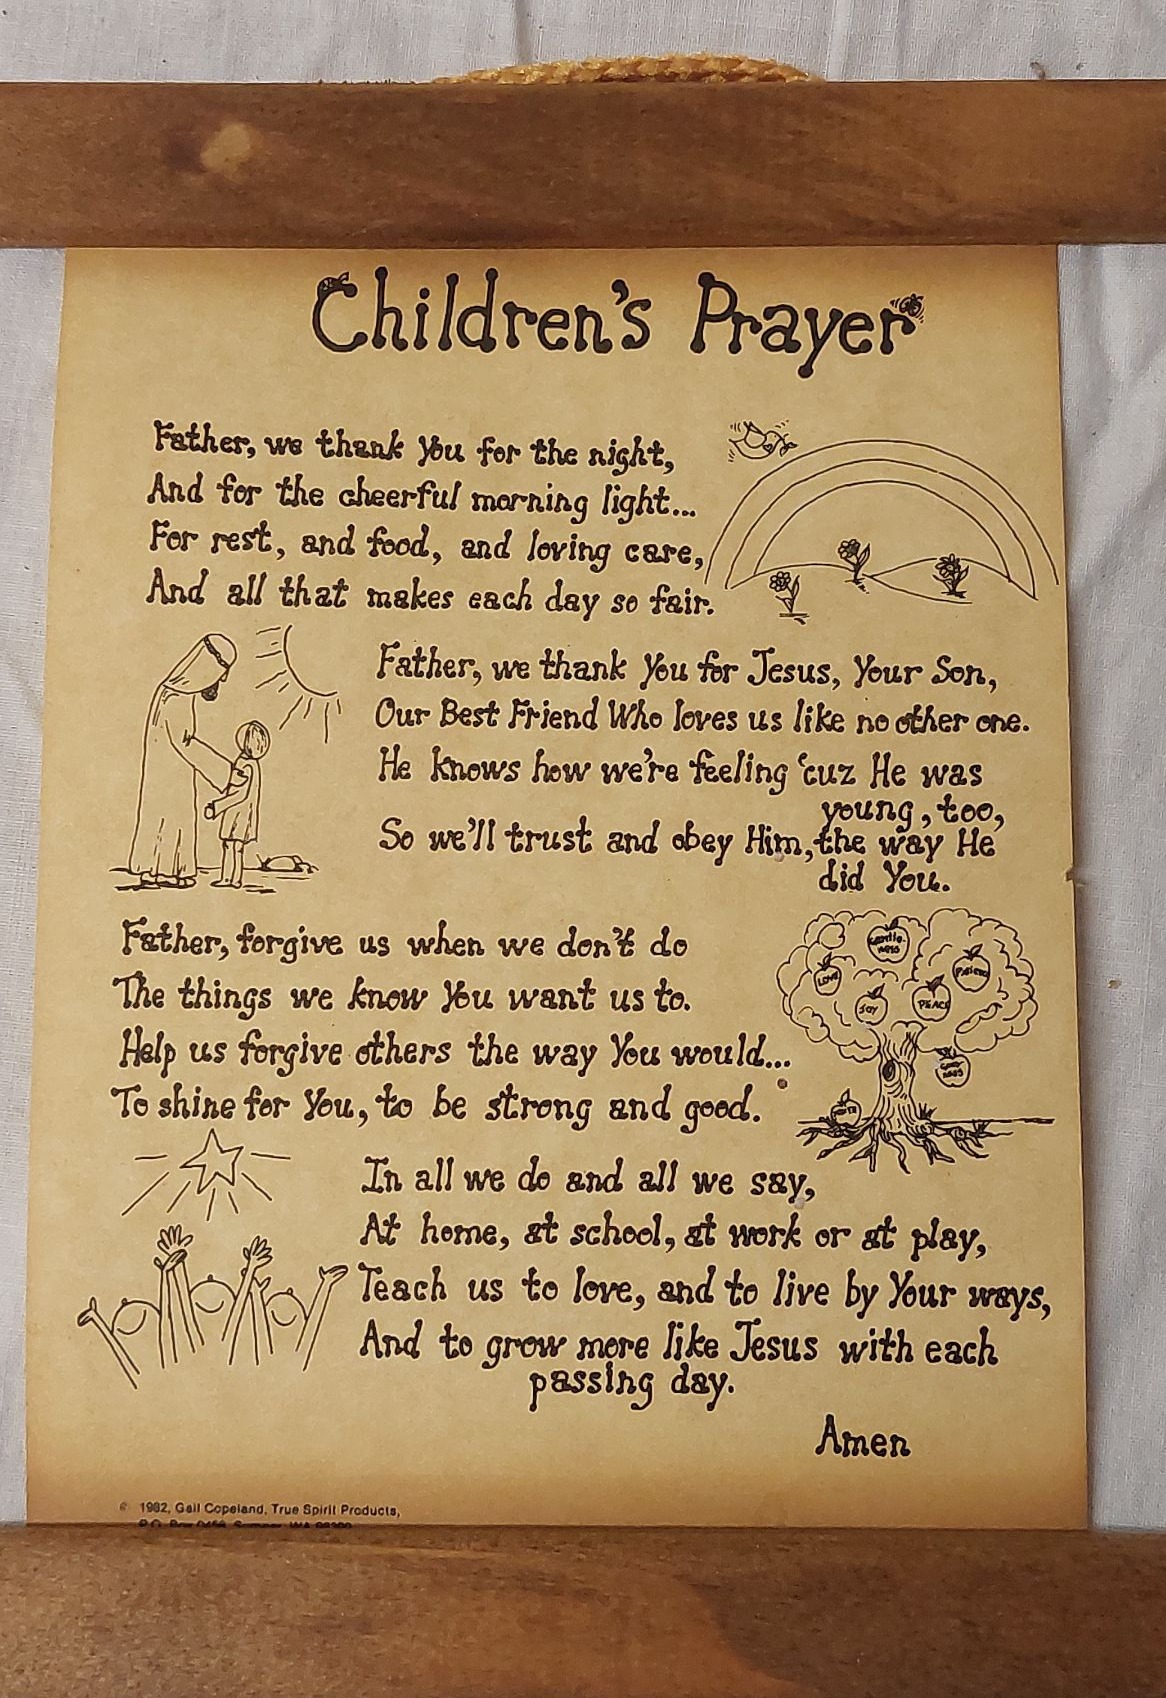 Children's Prayer
Father, we thank You for the night,
And for the cheerful morning light...
For rest, and food, and loving care,
And all that makes each day so fair.
Father, we thank You for Jesus, Your Son,
Our Best Friend Who loves us like no other one.
He knows how we're feeling 'cuz He was
young, too,
So we'll trust and obey Him, the way He
did You.
Father, forgive us when we don't do
The things we know You want us to.
Help us forgive others the way You would...
To shine for You, to be strong and good.
Gentle-
ness
LOVE
PATIENCE
JOY
PEACE
GOOD
NESS
In all we do and all we say,
At home, at school, at work or at play,
Teach us to love, and to live by Your ways,
And to grow more like Jesus with each
passing day.
Amen
© 1982, Gail Copeland, True Spirit Products,
P.O. Box